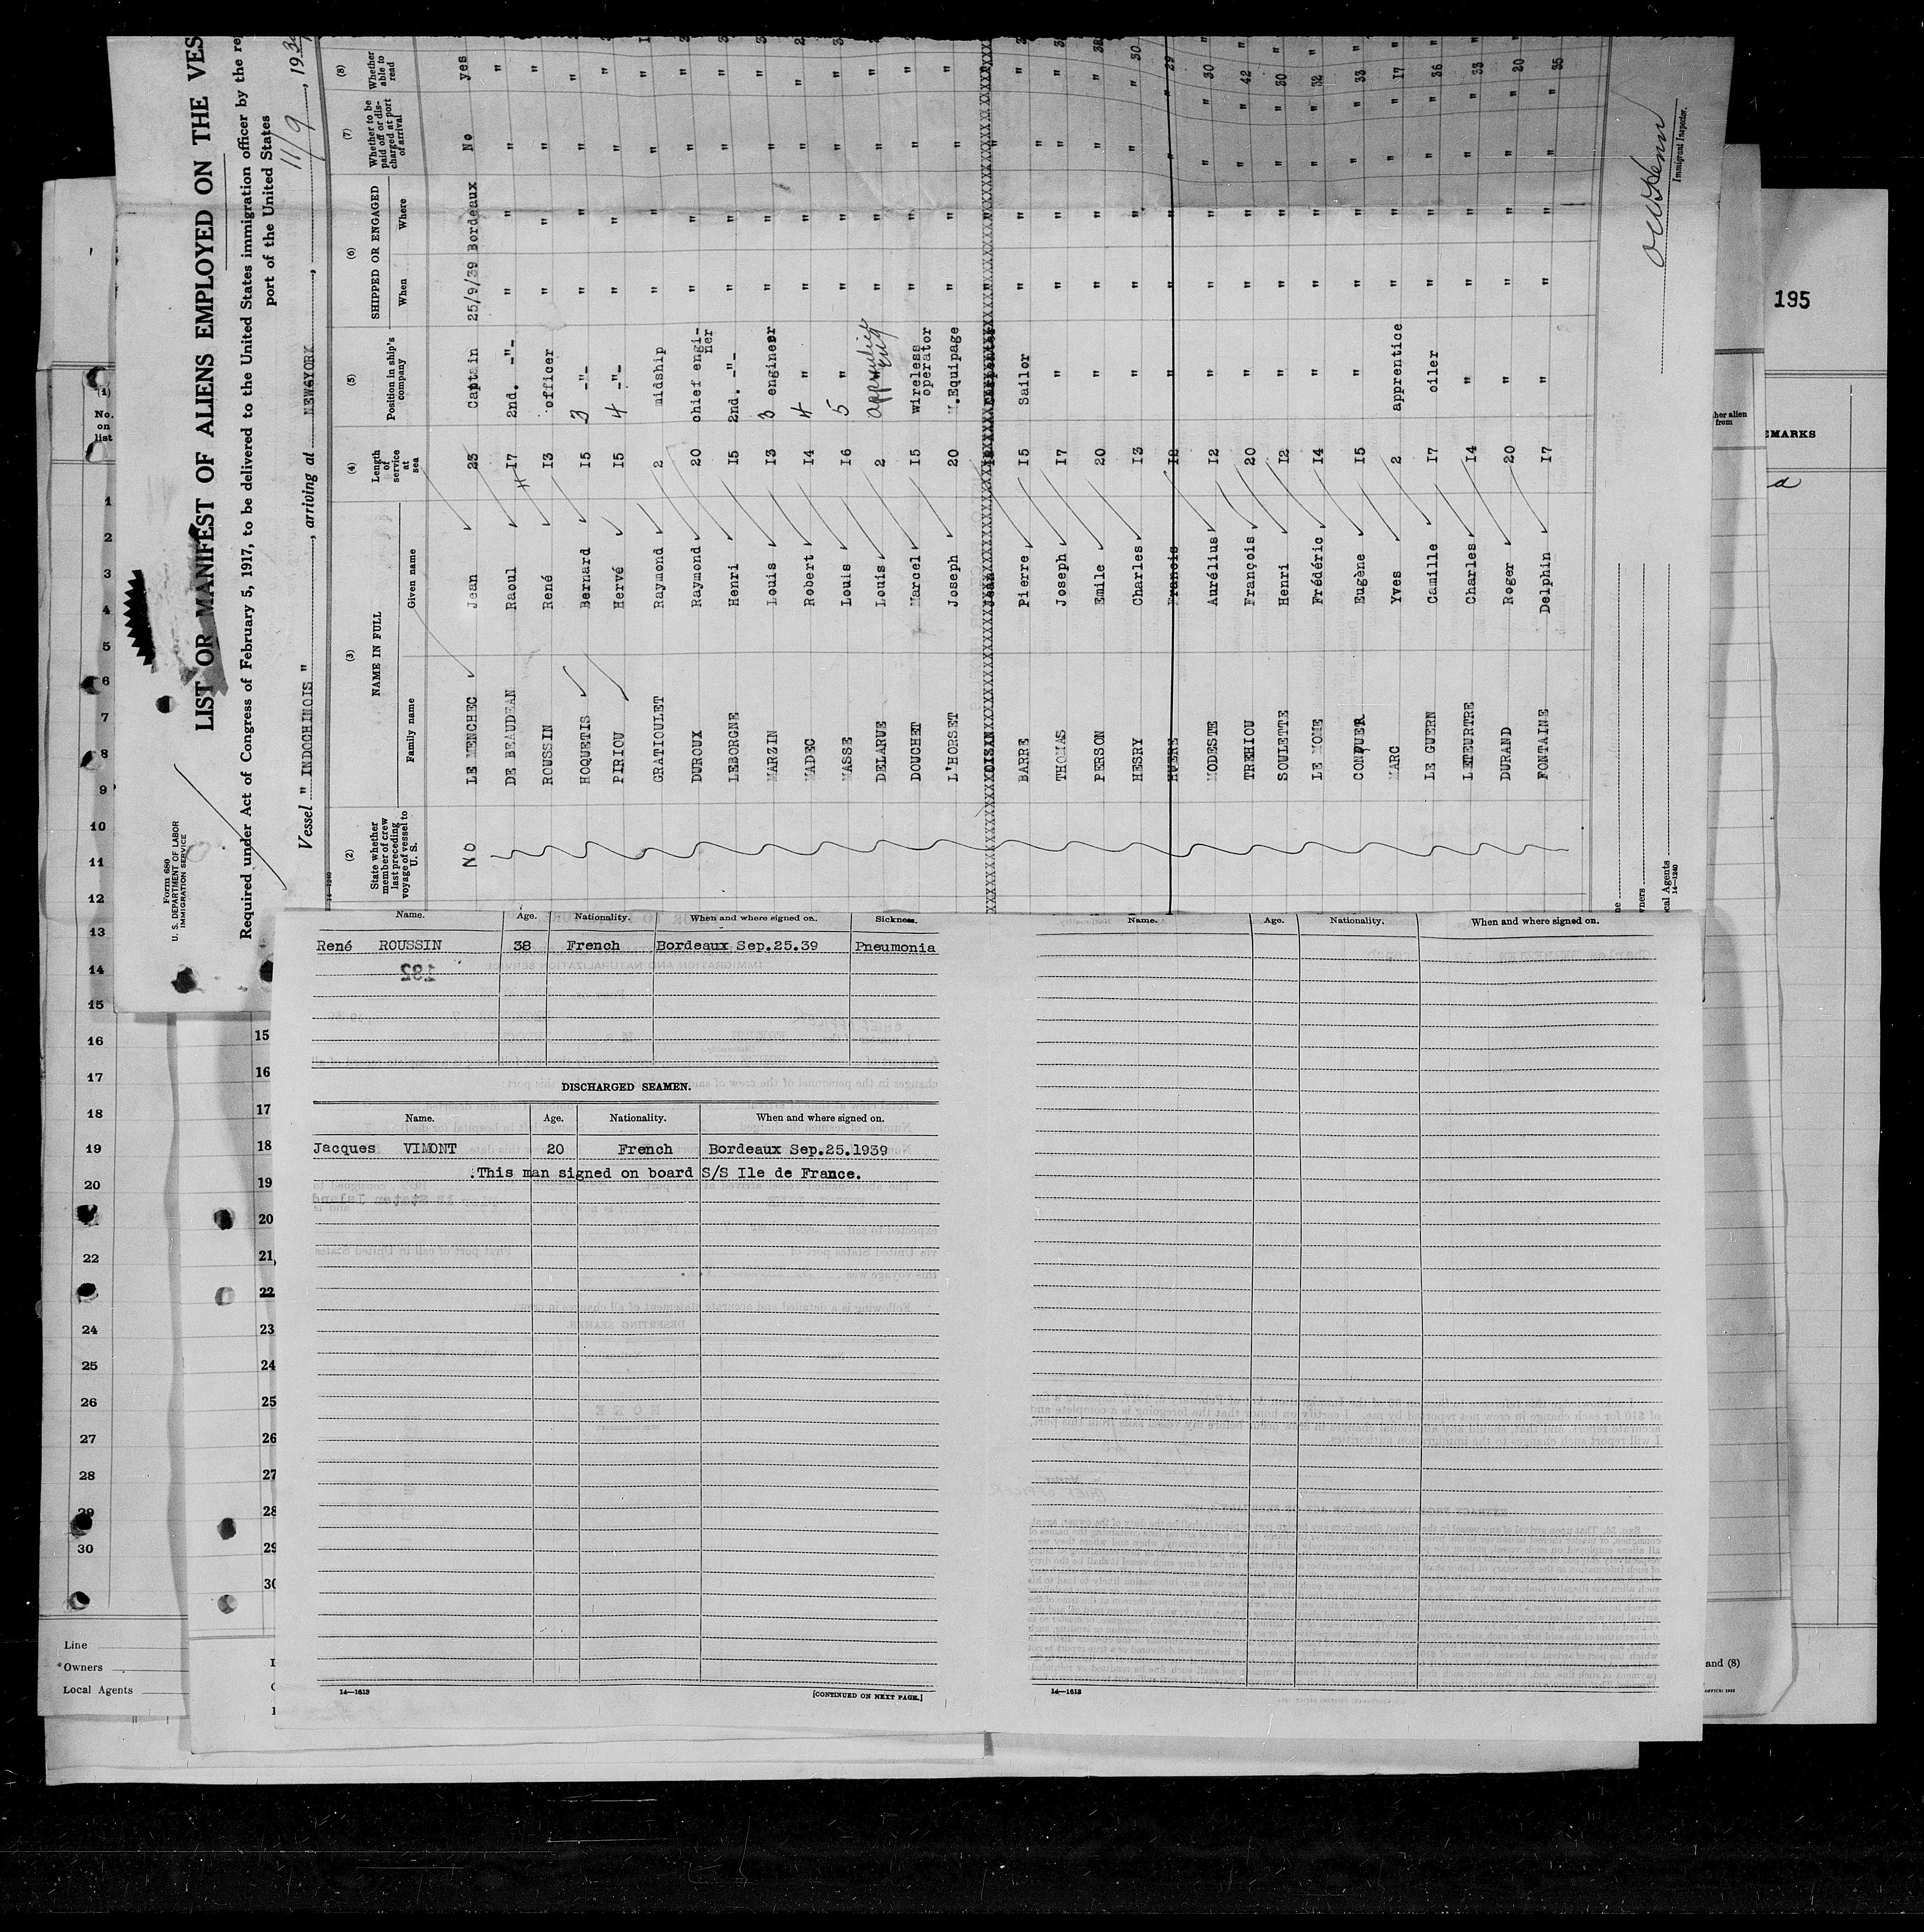 Form 680
U. S. DEPARTMENT OF LABOR
IMMIGRATION SERVICE
LIST OR MANIFEST OF ALIENS EMPLOYED ON THE VES
Required under Act of Congress of February 5, 1917, to be delivered to the United States immigration officer by the re
port of the United States
Vessel " INDOCHINOIS ", arriving at NEWYORK, 11/9, 193
(2) (3) (4) (5) (6) (7) (8)
State whether member of crew last preceding voyage of vessel to U. S.
NAME IN FULL
Family name Given name
Length of service at sea
Position in ship's company
SHIPPED OR ENGAGED
When Where
Whether to be paid off or discharged at port of arrival
Whether able to read
No LE MENCHEC Jean 23 Captain 25/9/39 Bordeaux No yes
DE BEAUDEAN Raoul 17 2nd. -"- " " " "
ROUSSIN René 13 officer " " " "
HOQUETIS Bernard 15 3 -"- " " " "
PIRIOU Hervé 15 4 -"- " " " "
GRATIOULET Raymond 2 midship " " " "
DUROUX Raymond 20 chief engi-ner " " " "
LEBORGNE Henri 15 2nd. -"- " " " "
MARZIN Louis 13 3 engineer " " " "
MADEC Robert 14 4 " " " " "
MASSE Louis 16 5 " " " " "
DELARUE Louis 2 apprentice eng " " " "
DOUCHET Marcel 15 wireless operator " " " "
L'HORSET Joseph 20 M.Equipage " " " "
BARRE Pierre 15 Sailor " " " "
THOMAS Joseph 17 " " " " "
PERSON Emile 20 " " " " " 38
HESRY Charles 13 " " " " " 30
HUERE Francis 18 " " " " " 29
MODESTE Aurélius 12 " " " " " 30
TREHIOU François 20 " " " " " 42
SOULETTE Henri 12 " " " " " 30
LE MOME Frédéric 14 " " " " " 32
Eugène 15 " " " " " 33
MARC Yves 2 apprentice " " " " 17
LE GUERN Camille 17 oiler " " " " 36
LETEURTRE Charles 14 " " " " " 33
DURAND Roger 20 " " " " " 20
FONTAINE Delphin 17 " " " " " 35
Immigrant Inspector.
14—1240
cal Agents
14—1240
195
EMARKS
and (8)
(1)
No. on list
1
2
3
4
5
6
7
8
9
10
11
12
13
14
15
16
17
18
19
20
22
24
25
26
27
28
29
30
Line
Owners
Local Agents
15
16
17
18
19
20
21
22
23
24
25
26
27
28
29
30
Name. Age. Nationality. When and where signed on. Sickness.
René ROUSSIN 38 French Bordeaux Sep.25.39 Pneumonia
192
DISCHARGED SEAMEN.
Name. Age. Nationality. When and where signed on.
Jacques VIMONT 20 French Bordeaux Sep.25.1939
.This man signed on board S/S Ile de France.
14—1613
[CONTINUED ON NEXT PAGE.]
Name. Age. Nationality. When and where signed on.
14—1613